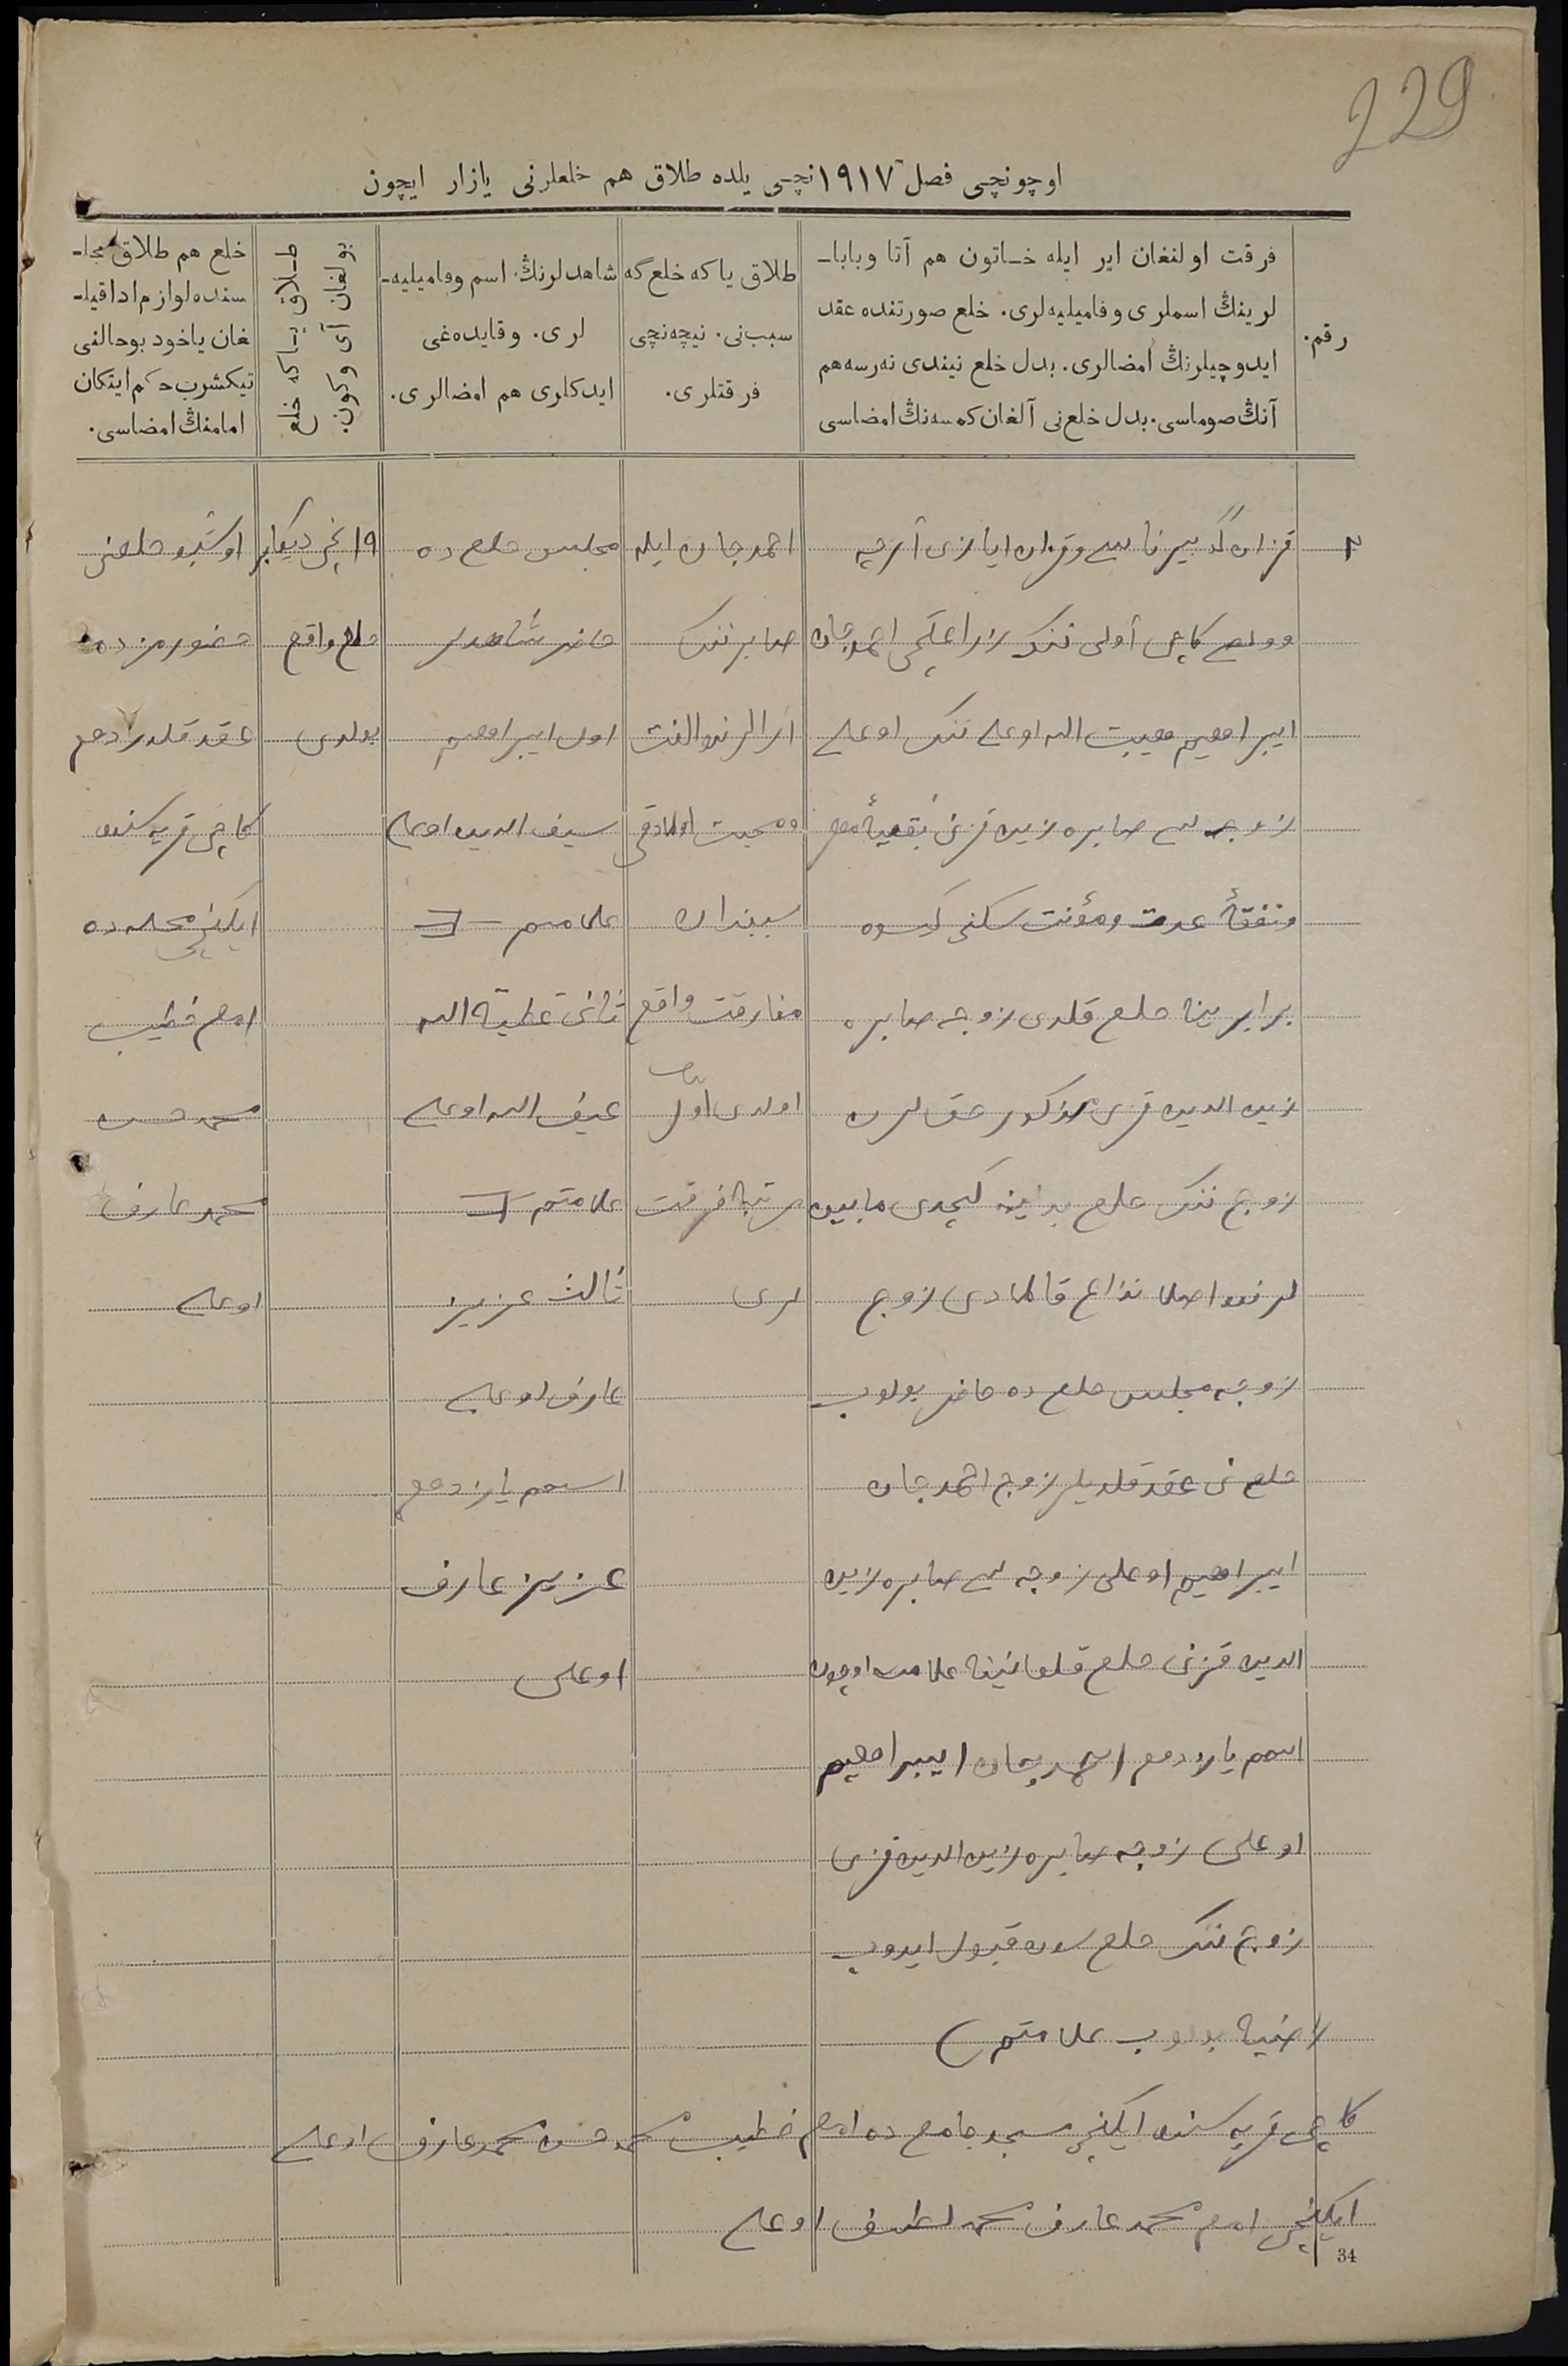 229
اوچونچی فصل ١٩١٧ نچی یلده طلاق هم خلعلرنی یازار ایچون
رقم.
فرقت اولنغان ایر ایله خاتون هم آتا وبابا-
لرینڭ اسملری وفامیلیه‌لری. خلع صورتنده عقد
ایدوچیلرنڭ امضالری. بدل خلع نیندی نه‌رسه هم
آنڭ صوماسی. بدل خلع‌نی آلغان کمسه‌نڭ امضاسی
طلاق یا که خلع گه
سبب‌نی. نیچه‌نچی
فرقتلری.
شاهدلرنڭ اسم وفامیلیه-
لری. وقایده‌غی
ایدکلری هم امضالری.
طلاق یا که خلع
بولغان آی وکون.
خلع هم طلاق مجا-
سنده لوازم ادا قیلـ
غان یاخود بوحالنی
تیکشرب حکم ایتکان
امامنڭ امضاسی.
٢
قزان گوبیرناسی وقزان ایازی آرچه
وولصی کاچی أولی ننک احمدجان
ایبراهیم هیبت الله اوغلی ننک اوغلی
زوجه سی صابره زین قزی بقیهٔ مهر
ونفقهٔ عدت ومؤنت سکنی کسوه
برابرینه خلع قلدی زوجه صابره
زین الدین قزی مذکور حق لرن
زوج ننک خلع بدلینه کیچدی مابین
لرنده اصلا نزاع قالمادی زوج
زوجه مجلس خلع ده حاضر بولوب
خلع نی عقد قلدیلر زوج احمدجان
ایبراهیم اوغلی زوجه سی صابره زین
الدین قزی خلع قلغانینه علامت اوچون
اسمم یازدم احمدجان ایبراهیم
اوغلی زوجه صابره زین الدین قزی
زوج ننک خلع سن قبول ایدوب
راضیه بولوب علامتم
احمدجان ایله
صابر ننک
آرالرنده الفت
ومحبت اولمادقی
سببندان
مفارقت واقع
اولدی اول
مرتبه فرقت
لری
مجلس خلع ده
حاضر شاهدلر
اول ایبراهیم
سیف الدین اوغلی
علامتم
ثانی عطیة الله
عیف الله اوغلی
علامتم
ثالث عزیز
عارف اوغلی
اسمم یازدم
عزیز عارف
اوغلی
١٩ نچی دیکابر
خلع واقع
بولدی
اوشبو خلعنی
حضورمزده
عقد قلدردم
کاچی قریه سنده
ایکنچی محله ده
امام خطیب
محمدحسن
محمدعارف
اوغلی
کاچی قریه سنده ایکنچی مسجد جامع ده امام خطیب محمدحسن محمدعارف اوغلی
ایکنچی امام محمدعارف محمدلطیف اوغلی
34